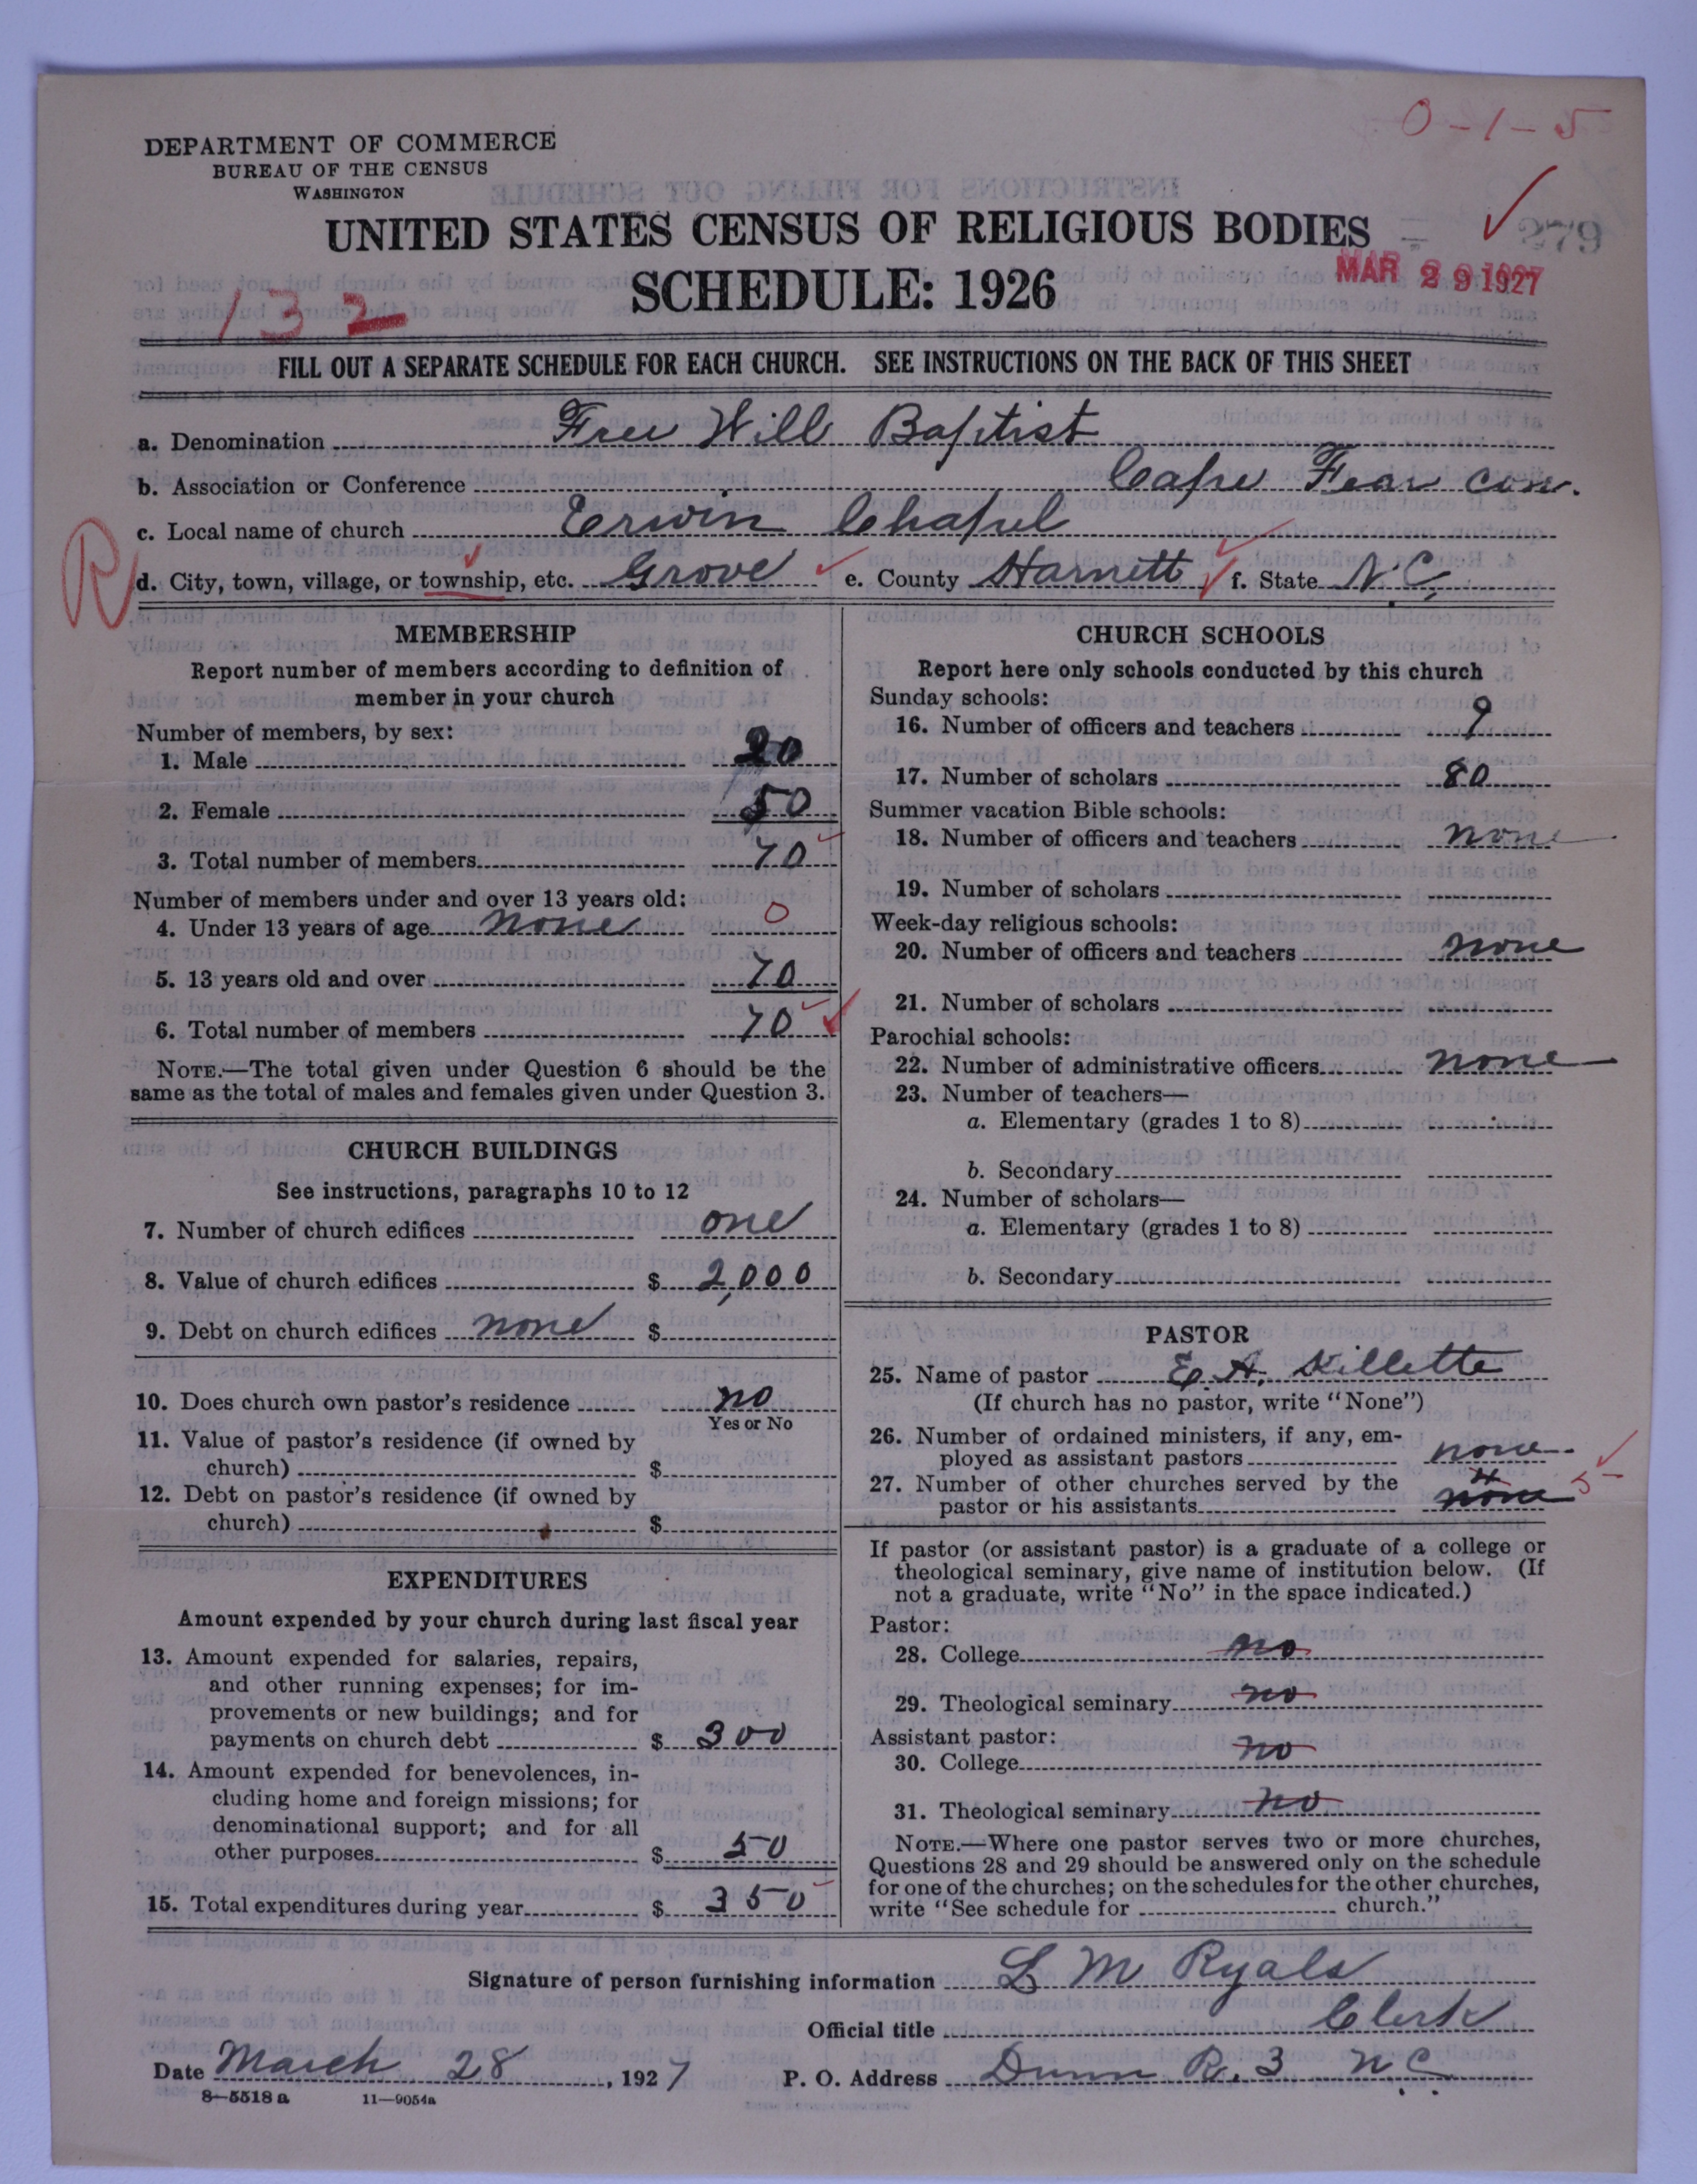 0-1-5
DEPARTMENT OF COMMERCE
BUREAU OF THE CENSUS
WASHINGTON
UNITED STATES CENSUS OF RELIGIOUS BODIES
279
SCHEDULE: 1926
MAR 29 1927
132
FILL OUT A SEPARATE SCHEDULE FOR EACH CHURCH. SEE INSTRUCTIONS ON THE BACK OF THIS SHEET
a. Denomination Free Will Baptist
b. Association or Conference Cape Fear con.
c. Local name of church Erwin Chapel
R
d. City, town, village, or township, etc. Grove e. County Harnett f. State N.C.
MEMBERSHIP
Report number of members according to definition of
member in your church
Number of members, by sex:
1. Male 20
2. Female 50
3. Total number of members 70
Number of members under and over 13 years old:
4. Under 13 years of age none 0
5. 13 years old and over 70
6. Total number of members 70
NOTE.—The total given under Question 6 should be the
same as the total of males and females given under Question 3.
CHURCH BUILDINGS
See instructions, paragraphs 10 to 12
7. Number of church edifices one
8. Value of church edifices $ 2,000
9. Debt on church edifices none $
10. Does church own pastor's residence no
Yes or No
11. Value of pastor's residence (if owned by
church) $
12. Debt on pastor's residence (if owned by
church) $
EXPENDITURES
Amount expended by your church during last fiscal year
13. Amount expended for salaries, repairs,
and other running expenses; for im-
provements or new buildings; and for
payments on church debt $ 300
14. Amount expended for benevolences, in-
cluding home and foreign missions; for
denominational support; and for all
other purposes $ 50
15. Total expenditures during year $ 350
CHURCH SCHOOLS
Report here only schools conducted by this church
Sunday schools:
16. Number of officers and teachers 9
17. Number of scholars 80
Summer vacation Bible schools:
18. Number of officers and teachers none
19. Number of scholars
Week-day religious schools:
20. Number of officers and teachers none
21. Number of scholars
Parochial schools:
22. Number of administrative officers none
23. Number of teachers—
a. Elementary (grades 1 to 8)
b. Secondary
24. Number of scholars—
a. Elementary (grades 1 to 8)
b. Secondary
PASTOR
25. Name of pastor E. A. Killette
(If church has no pastor, write "None")
26. Number of ordained ministers, if any, em-
ployed as assistant pastors none
27. Number of other churches served by the
pastor or his assistants none 5
If pastor (or assistant pastor) is a graduate of a college or
theological seminary, give name of institution below. (If
not a graduate, write "No" in the space indicated.)
Pastor:
28. College no
29. Theological seminary no
Assistant pastor:
30. College no
31. Theological seminary no
NOTE.—Where one pastor serves two or more churches,
Questions 28 and 29 should be answered only on the schedule
for one of the churches; on the schedules for the other churches,
write "See schedule for church."
Signature of person furnishing information L M Ryals
Official title Clerk
Date March 28, 1927 P. O. Address Dunn R. 3 N C
8—5518 a 11—9054a